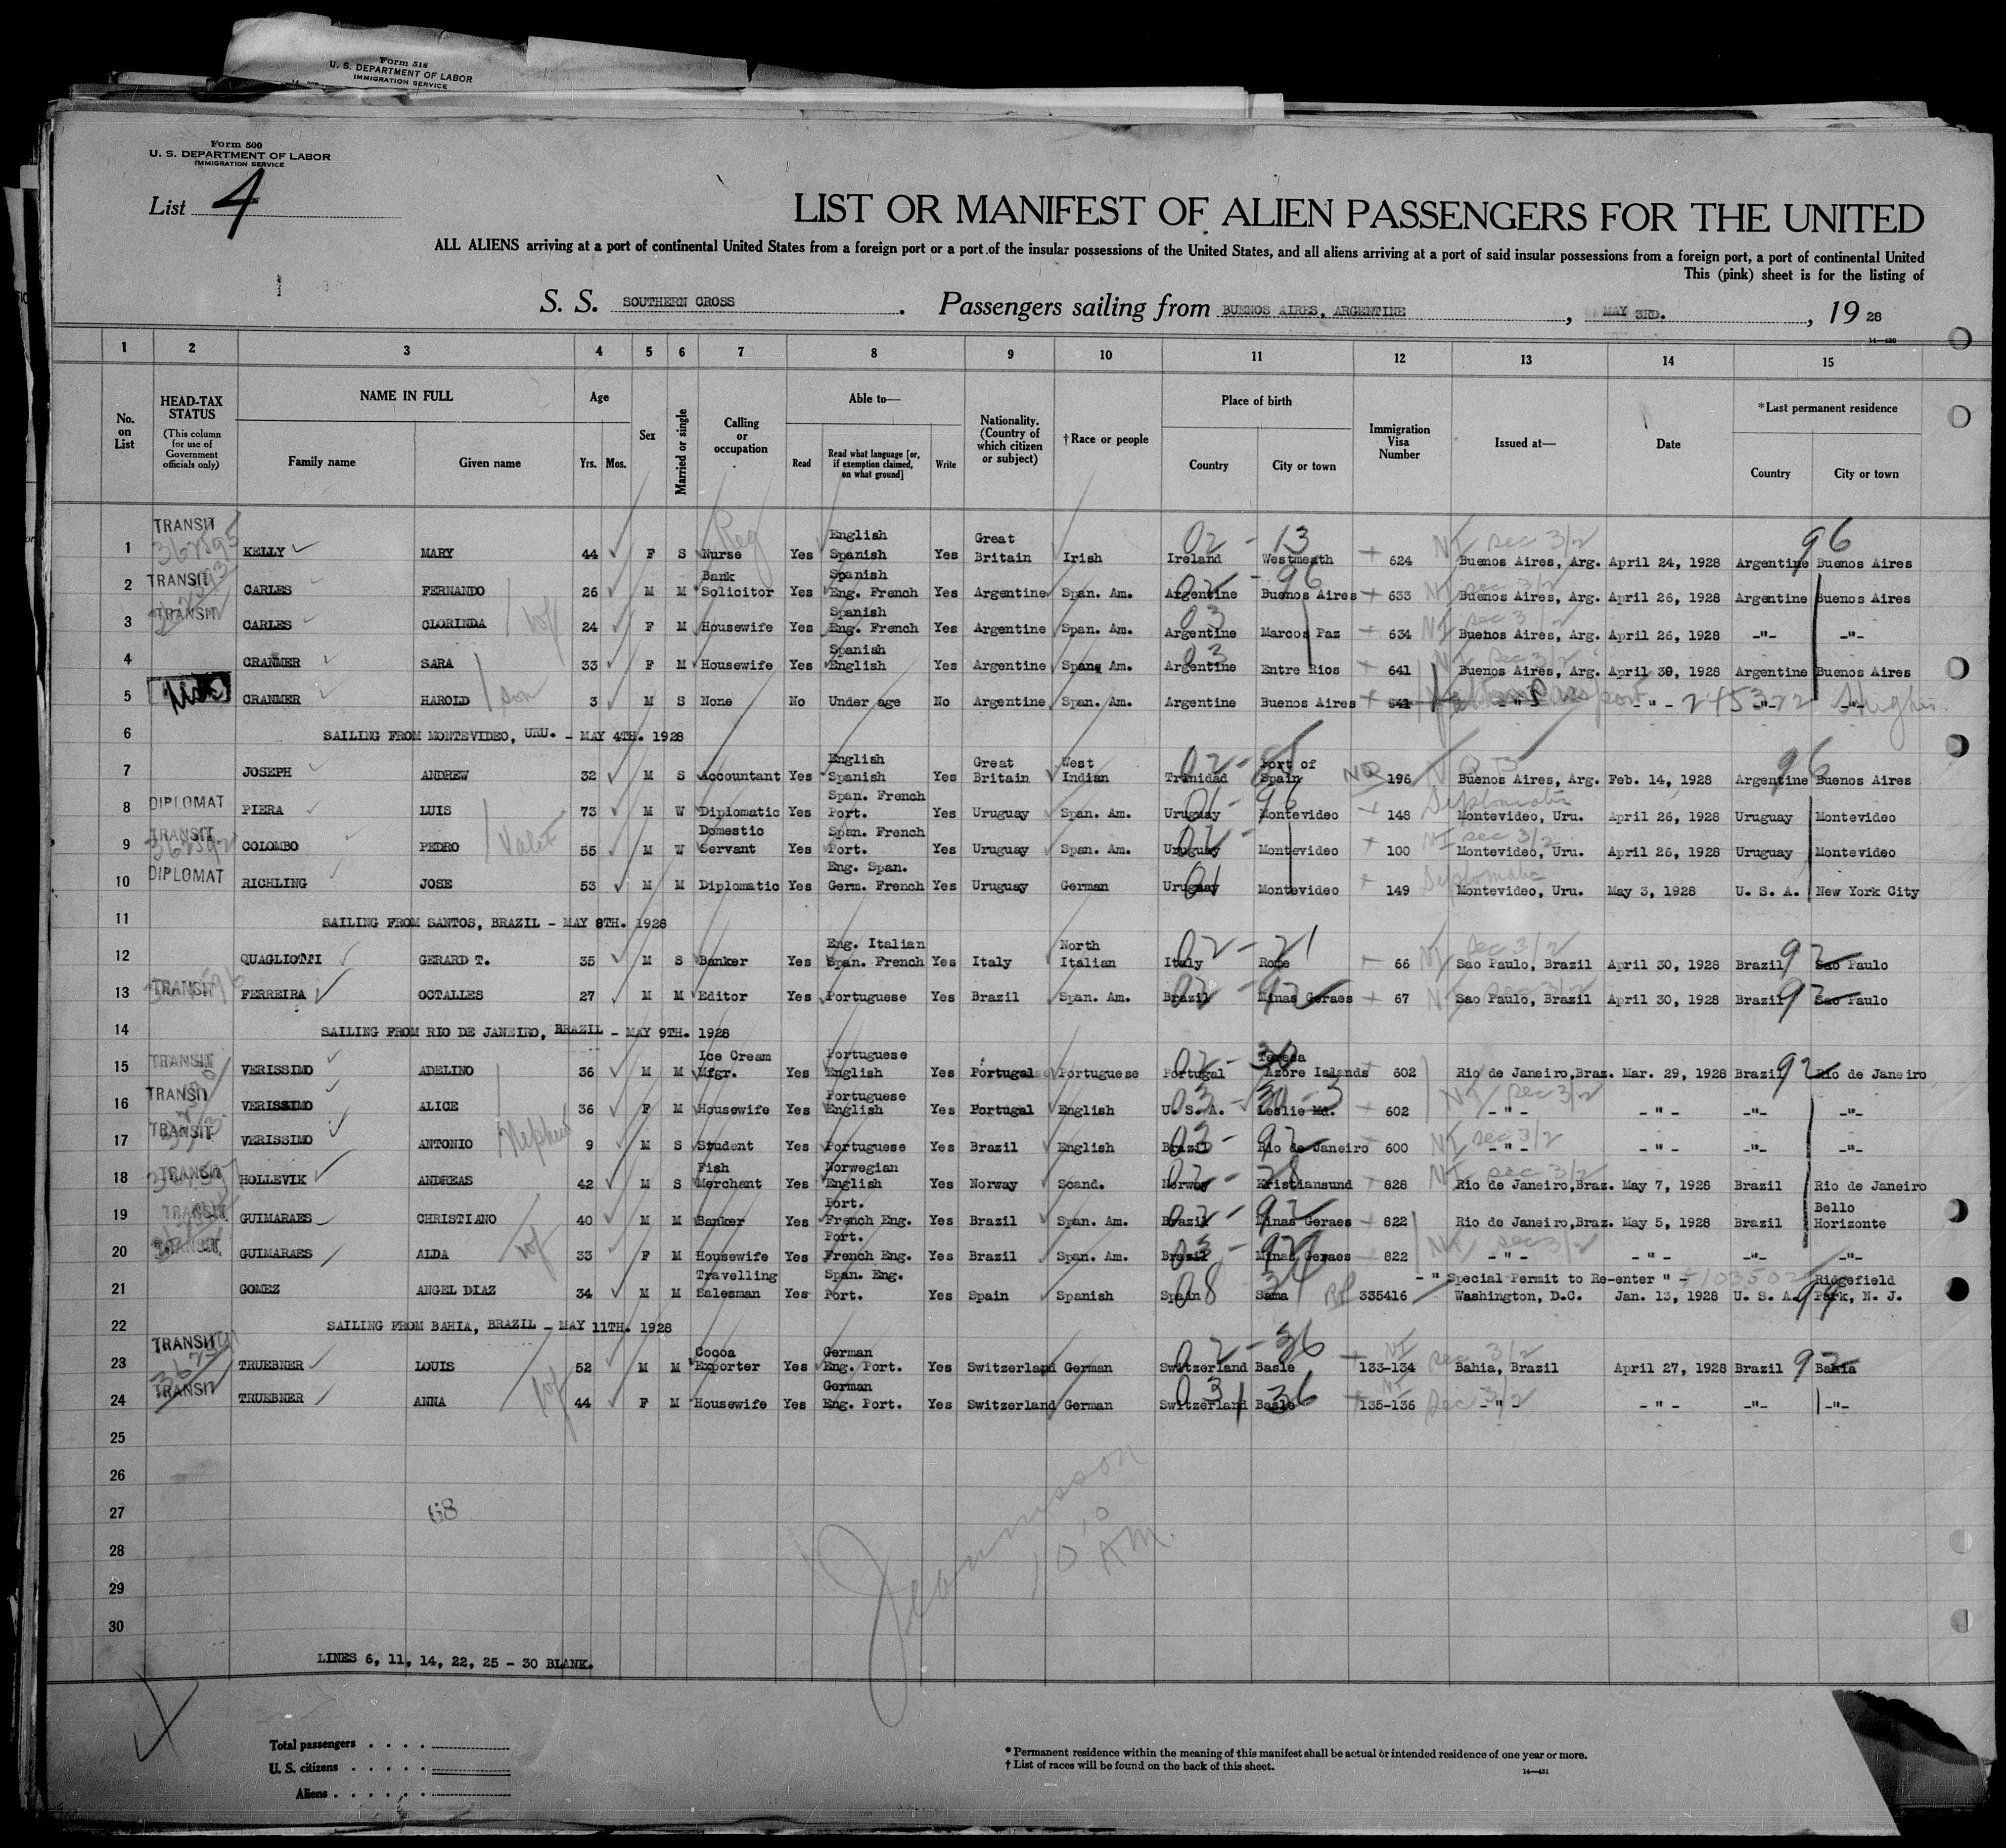 Form 518
U. S. DEPARTMENT OF LABOR
IMMIGRATION SERVICE
Form 500
U. S. DEPARTMENT OF LABOR
IMMIGRATION SERVICE
List 4
LIST OR MANIFEST OF ALIEN PASSENGERS FOR THE UNITED
ALL ALIENS arriving at a port of continental United States from a foreign port or a port of the insular possessions of the United States, and all aliens arriving at a port of said insular possessions from a foreign port, a port of continental United
This (pink) sheet is for the listing of
S. S. SOUTHERN CROSS. Passengers sailing from BUENOS AIRES, ARGENTINE, MAY 3RD., 19 28
14—430
1 2 3 4 5 6 7 8 9 10 11 12 13 14 15
No. on List
HEAD-TAX STATUS (This column for use of Government officials only)
NAME IN FULL
Family name Given name
Age
Yrs. Mos.
Sex
Married or single
Calling or occupation
Able to—
Read Read what language [or, if exemption claimed, on what ground] Write
Nationality. (Country of which citizen or subject)
†Race or people
Place of birth
Country City or town
Immigration Visa Number
Issued at—
Date
*Last permanent residence
Country City or town
1 TRANSIT KELLY MARY 44 F S Nurse Yes English Spanish Yes Great Britain Irish Ireland Westmeath 624 Buenos Aires, Arg. April 24, 1928 Argentine Buenos Aires
2 TRANSIT CARLES FERNANDO 26 M M Bank Solicitor Yes Spanish Eng. French Yes Argentine Span. Am. Argentine Buenos Aires 633 Buenos Aires, Arg. April 26, 1928 Argentine Buenos Aires
3 TRANSIT CARLES CLORINDA wf 24 F M Housewife Yes Spanish Eng. French Yes Argentine Span. Am. Argentine Marcos Paz 634 Buenos Aires, Arg. April 26, 1928 -"- -"-
4 CRANMER SARA 33 F M Housewife Yes Spanish English Yes Argentine Span. Am. Argentine Entre Rios 641 Buenos Aires, Arg. April 30, 1928 Argentine Buenos Aires
5 CRANMER HAROLD son 3 M S None No Under age No Argentine Span. Am. Argentine Buenos Aires 641 - " - - " - 245322 -"- -"-
6 SAILING FROM MONTEVIDEO, URU. - MAY 4TH. 1928
7 JOSEPH ANDREW 32 M S Accountant Yes English Spanish Yes Great Britain West Indian Trinidad Port of Spain 196 Buenos Aires, Arg. Feb. 14, 1928 Argentine Buenos Aires
8 DIPLOMAT PIERA LUIS 73 M W Diplomatic Yes Span. French Port. Yes Uruguay Span. Am. Uruguay Montevideo 148 Diplomatic Montevideo, Uru. April 26, 1928 Uruguay Montevideo
9 TRANSIT COLOMBO PEDRO Valet 55 M W Domestic Servant Yes Span. French Port. Yes Uruguay Span. Am. Uruguay Montevideo 100 Montevideo, Uru. April 26, 1928 Uruguay Montevideo
10 DIPLOMAT RICHLING JOSE 53 M M Diplomatic Yes Eng. Span. Germ. French Yes Uruguay German Uruguay Montevideo 149 Diplomatic Montevideo, Uru. May 3, 1928 U. S. A. New York City
11 SAILING FROM SANTOS, BRAZIL - MAY 8TH. 1928
12 QUAGLIOTTI GERARD T. 35 M S Banker Yes Eng. Italian Span. French Yes Italy North Italian Italy Rome 66 Sao Paulo, Brazil April 30, 1928 Brazil Sao Paulo
13 TRANSIT FERREIRA OCTALLES 27 M M Editor Yes Portuguese Yes Brazil Span. Am. Brazil Minas Geraes 67 Sao Paulo, Brazil April 30, 1928 Brazil Sao Paulo
14 SAILING FROM RIO DE JANEIRO, BRAZIL - MAY 9TH. 1928
15 TRANSIT VERISSIMO ADELINO 36 M M Ice Cream Mfgr. Yes Portuguese English Yes Portugal Portuguese Portugal Azore Islands 602 Rio de Janeiro,Braz. Mar. 29, 1928 Brazil Rio de Janeiro
16 TRANSIT VERISSIMO ALICE 36 F M Housewife Yes Portuguese English Yes Portugal English U. S. A. Leslie Md. 602 - " - - " - -"- -"-
17 TRANSIT VERISSIMO ANTONIO Nephew 9 M S Student Yes Portuguese Yes Brazil English Brazil Rio de Janeiro 600 - " - - " - -"- -"-
18 TRANSIT HOLLEVIK ANDREAS 42 M S Fish Merchant Yes Norwegian English Yes Norway Scand. Norway Kristiansund 828 Rio de Janeiro,Braz. May 7, 1928 Brazil Rio de Janeiro
19 TRANSIT GUIMARAES CHRISTIANO 40 M M Banker Yes Port. French Eng. Yes Brazil Span. Am. Brazil Minas Geraes 822 Rio de Janeiro,Braz. May 5, 1928 Brazil Bello Horizonte
20 TRANSIT GUIMARAES ALDA wf 33 F M Housewife Yes Port. French Eng. Yes Brazil Span. Am. Brazil Minas Geraes 822 - " - - " - -"- -"-
21 GOMEZ ANGEL DIAZ 34 M M Travelling Salesman Yes Span. Eng. Port. Yes Spain Spanish Spain Sama 335416 - " Special Permit to Re-enter " - Washington, D.C. Jan. 13, 1928 U. S. A. Ridgefield Park, N. J.
22 SAILING FROM BAHIA, BRAZIL - MAY 11TH. 1928
23 TRANSIT TRUEBNER LOUIS 52 M M Cocoa Exporter Yes German Eng. Port. Yes Switzerland German Switzerland Basle 133-134 Bahia, Brazil April 27, 1928 Brazil Bahia
24 TRANSIT TRUEBNER ANNA wf 44 F M Housewife Yes German Eng. Port. Yes Switzerland German Switzerland Basle 135-136 - " - - " - -"- -"-
25
26
27
28
29
30
LINES 6, 11, 14, 22, 25 - 30 BLANK.
10 AM.
Total passengers
U. S. citizens
Aliens
*Permanent residence within the meaning of this manifest shall be actual or intended residence of one year or more.
†List of races will be found on the back of this sheet.
14—431